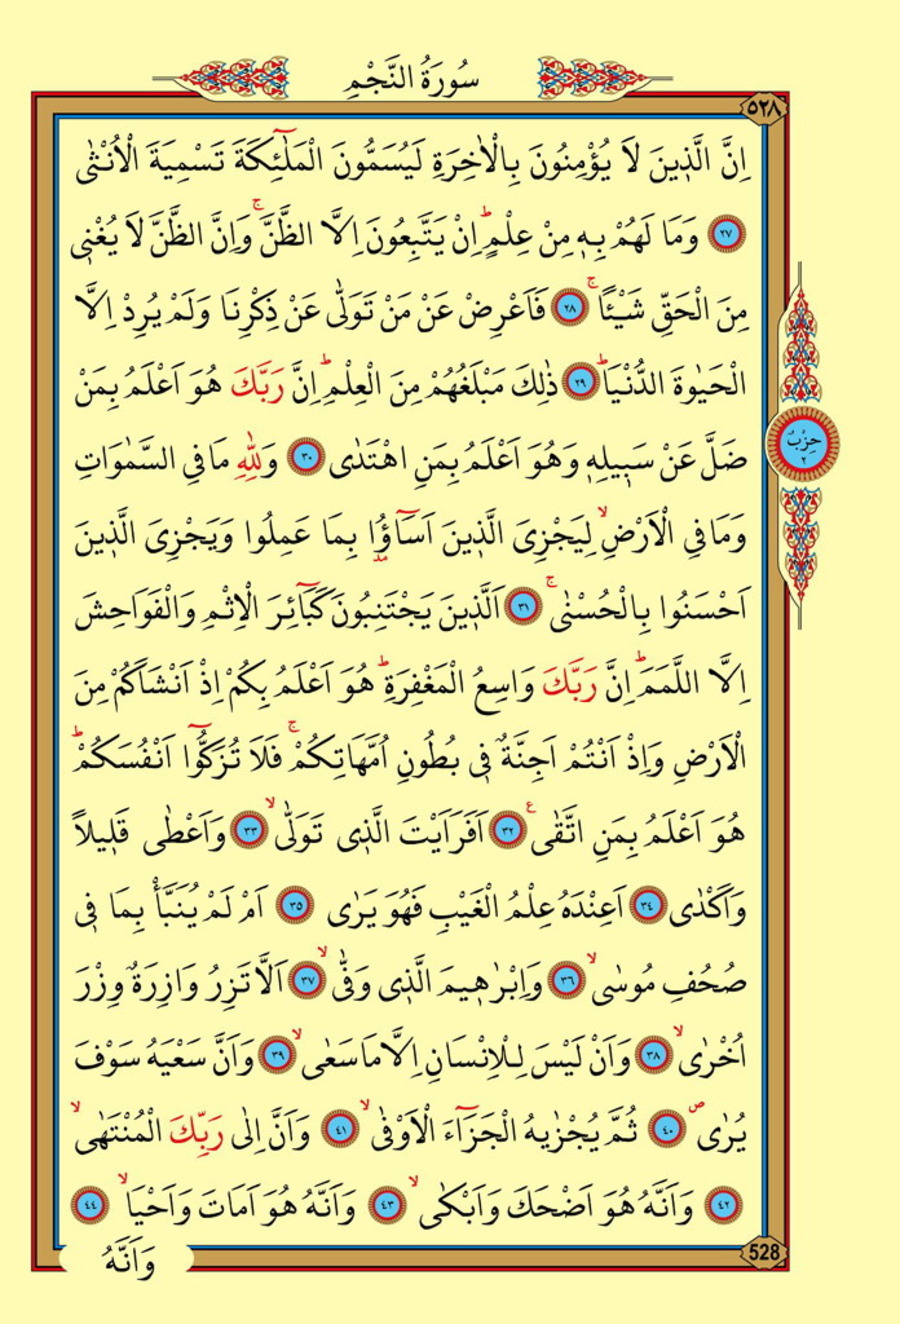 سُورَةُ النَّجْمِ
٥٢٨
اِنَّ الَّذ۪ينَ لَا يُؤْمِنُونَ بِالْاٰخِرَةِ لَيُسَمُّونَ الْمَلٰٓئِكَةَ تَسْمِيَةَ الْاُنْثٰى
٢٧ وَمَا لَهُمْ بِه۪ مِنْ عِلْمٍۜ اِنْ يَتَّبِعُونَ اِلَّا الظَّنَّۚ وَاِنَّ الظَّنَّ لَا يُغْن۪ي
مِنَ الْحَقِّ شَيْـًٔاۚ ٢٨ فَاَعْرِضْ عَنْ مَنْ تَوَلّٰى عَنْ ذِكْرِنَا وَلَمْ يُرِدْ اِلَّا
الْحَيٰوةَ الدُّنْيَاۜ ٢٩ ذٰلِكَ مَبْلَغُهُمْ مِنَ الْعِلْمِۜ اِنَّ رَبَّكَ هُوَ اَعْلَمُ بِمَنْ
ضَلَّ عَنْ سَب۪يلِه۪ وَهُوَ اَعْلَمُ بِمَنِ اهْتَدٰى ٣٠ وَلِلّٰهِ مَا فِي السَّمٰوَاتِ
وَمَا فِي الْاَرْضِۙ لِيَجْزِيَ الَّذ۪ينَ اَسَٓاؤُ۫ا بِمَا عَمِلُوا وَيَجْزِيَ الَّذ۪ينَ
اَحْسَنُوا بِالْحُسْنٰىۚ ٣١ اَلَّذ۪ينَ يَجْتَنِبُونَ كَبَٓائِرَ الْاِثْمِ وَالْفَوَاحِشَ
اِلَّا اللَّمَمَۜ اِنَّ رَبَّكَ وَاسِعُ الْمَغْفِرَةِۜ هُوَ اَعْلَمُ بِكُمْ اِذْ اَنْشَاَكُمْ مِنَ
الْاَرْضِ وَاِذْ اَنْتُمْ اَجِنَّةٌ ف۪ي بُطُونِ اُمَّهَاتِكُمْۚ فَلَا تُزَكُّٓوا اَنْفُسَكُمْۜ
هُوَ اَعْلَمُ بِمَنِ اتَّقٰى۟ ٣٢ اَفَرَاَيْتَ الَّذ۪ي تَوَلّٰىۙ ٣٣ وَاَعْطٰى قَل۪يلاً
وَاَكْدٰى ٣٤ اَعِنْدَهُ عِلْمُ الْغَيْبِ فَهُوَ يَرٰى ٣٥ اَمْ لَمْ يُنَبَّأْ بِمَا ف۪ي
صُحُفِ مُوسٰىۙ ٣٦ وَاِبْرٰه۪يمَ الَّذ۪ي وَفّٰىۙ ٣٧ اَلَّا تَزِرُ وَازِرَةٌ وِزْرَ
اُخْرٰىۙ ٣٨ وَاَنْ لَيْسَ لِلْاِنْسَانِ اِلَّا مَا سَعٰىۙ ٣٩ وَاَنَّ سَعْيَهُ سَوْفَ
يُرٰىۖ ٤٠ ثُمَّ يُجْزٰيهُ الْجَزَٓاءَ الْاَوْفٰىۙ ٤١ وَاَنَّ اِلٰى رَبِّكَ الْمُنْتَهٰىۙ
٤٢ وَاَنَّهُ هُوَ اَضْحَكَ وَاَبْكٰىۙ ٤٣ وَاَنَّهُ هُوَ اَمَاتَ وَاَحْيَاۙ ٤٤
حِزْبٌ
٢
وَاَنَّهُ
528